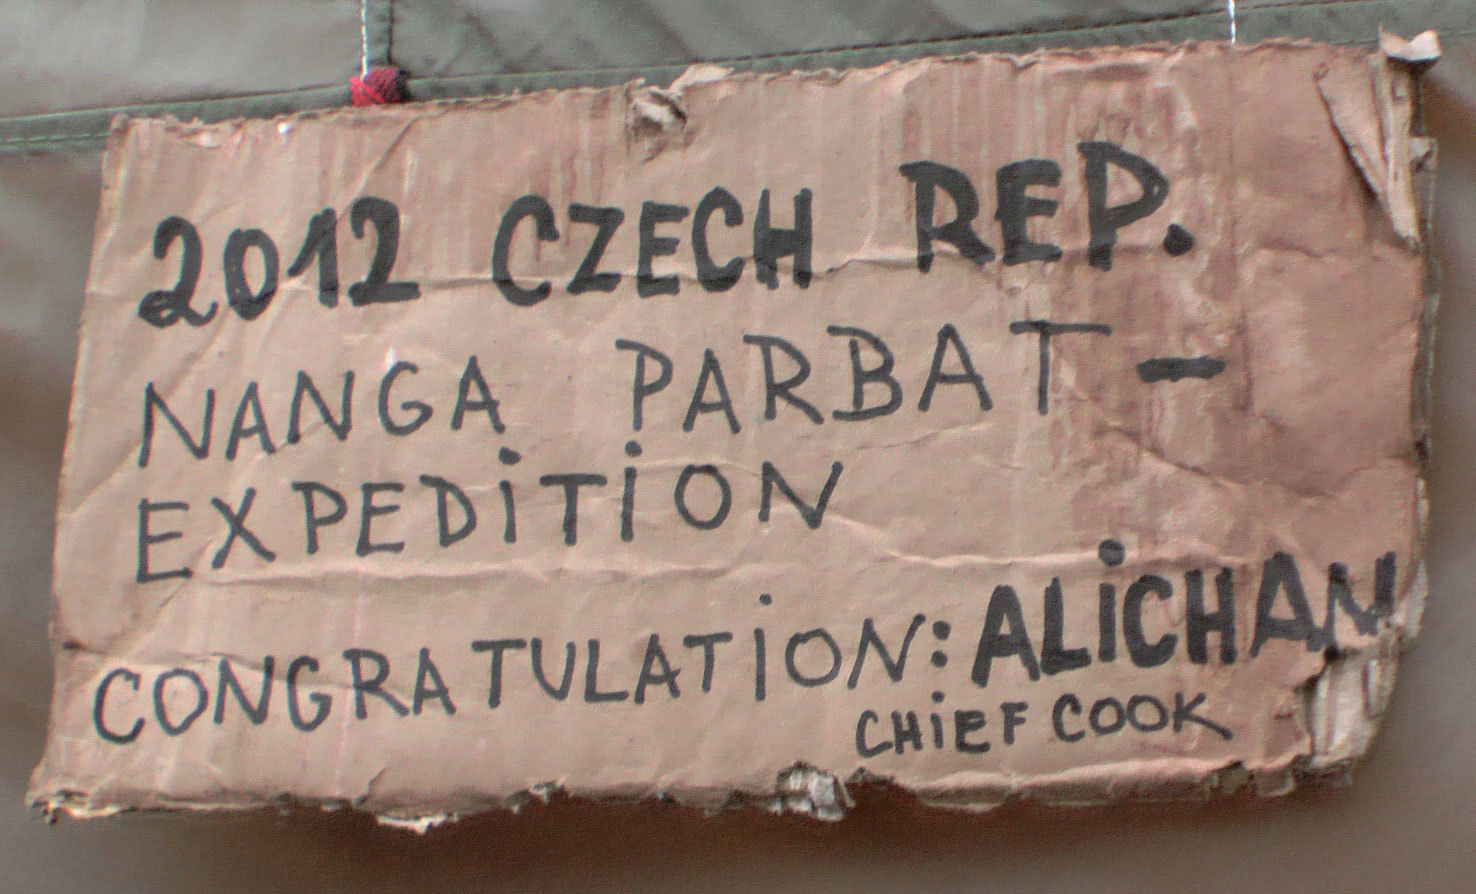 2012 CZECH REP.
NANGA PARBAT -
EXPEDiTiON
CONGRATULATiON: ALiCHAN
CHiEF COOK